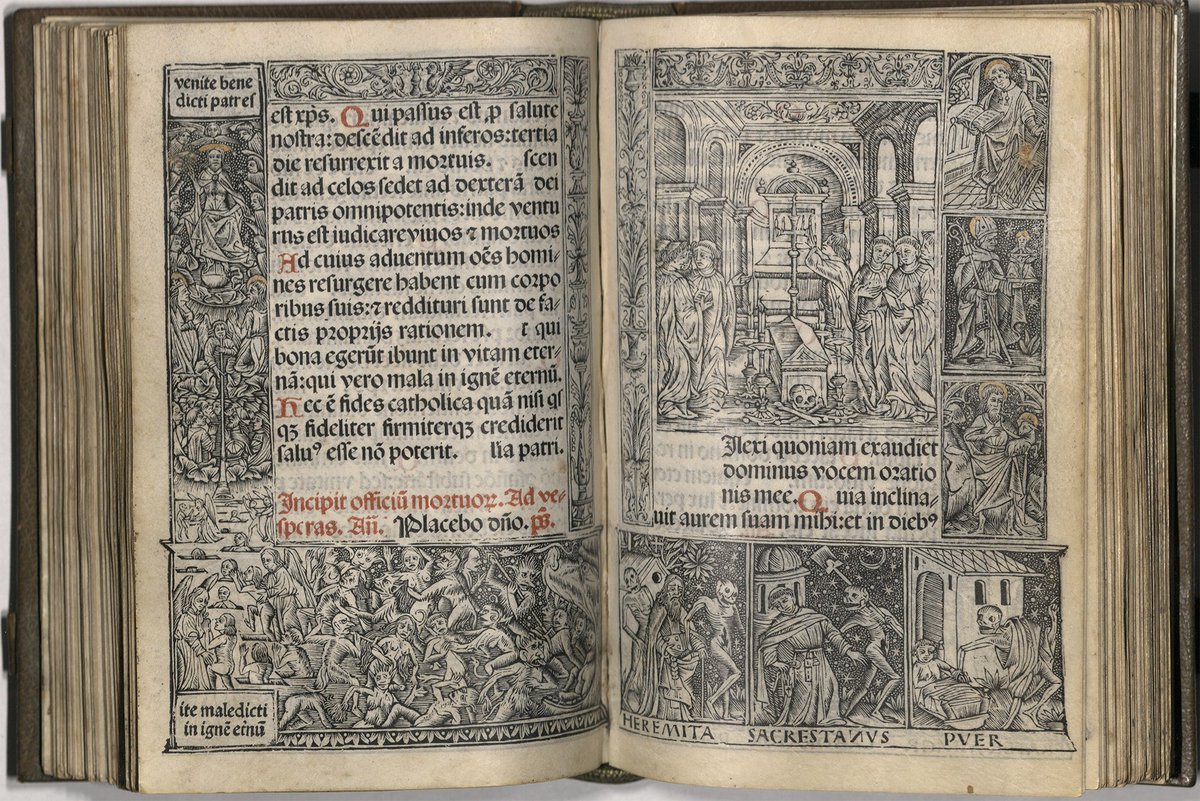 venite bene
dicti patres
est xp̄s. Qui passus est ꝓ salute
nostra: descēdit ad inferos: tertia
die resurrexit a mortuis. scen
dit ad celos sedet ad dexterā dei
patris omnipotentis: inde ventu
rus est iudicare viuos ⁊ mortuos
Ad cuius aduentum oēs homi-
nes resurgere habent cum corpo
ribus suis: ⁊ reddituri sunt de fa-
ctis proprijs rationem. t qui
bona egerūt ibunt in vitam eter-
nā: qui vero mala in ignē eternū.
Hec ē fides catholica quā nisi qs
qꝫ fideliter firmiterqꝫ crediderit
saluꝰ esse nō poterit. lia patri.
Incipit officiū mortuoꝝ. Ad ve-
speras. Añ. Placebo dño. p̄s.
ite maledicti
in ignē etnū
ilexi quoniam exaudiet
dominus vocem oratio
nis mee. Quia inclina-
uit aurem suam mihi: et in diebꝰ
HEREMITA SACRESTANVS PVER